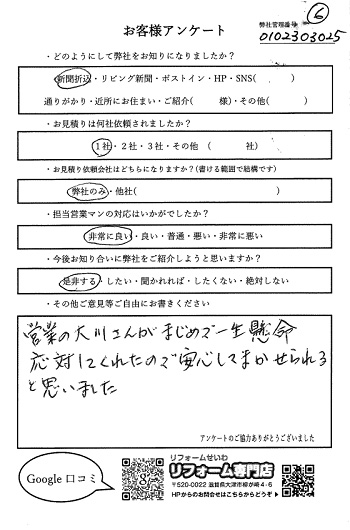 ⑥
お客様アンケート
弊社管理番号
0102303025
・どのようにして弊社をお知りになりましたか？
新聞折込・リビング新聞・ポストイン・HP・SNS(　　)
通りがかり・近所にお住まい・ご紹介(　　様)・その他(　　)
・お見積りは何社依頼されましたか？
1社・2社・3社・その他　(　　社)
・お見積り依頼会社はどちらになりますか？(書ける範囲で結構です)
弊社のみ・他社(　　)
・担当営業マンの対応はいかがでしたか？
非常に良い・良い・普通・悪い・非常に悪い
・今後お知り合いに弊社をご紹介しようと思いますか？
是非する・したい・聞かれれば・したくない・絶対しない
・その他ご意見等ご自由にお書きください
営業の大川さんがまじめで一生懸命
応対してくれたので安心してまかせられる
と思いました
アンケートのご協力ありがとうございました
Google 口コミ
リフォームせいわ
リフォーム専門店
〒520-0022 滋賀県大津市柳が崎4-6
HPからのお問合せはこちらからどうぞ